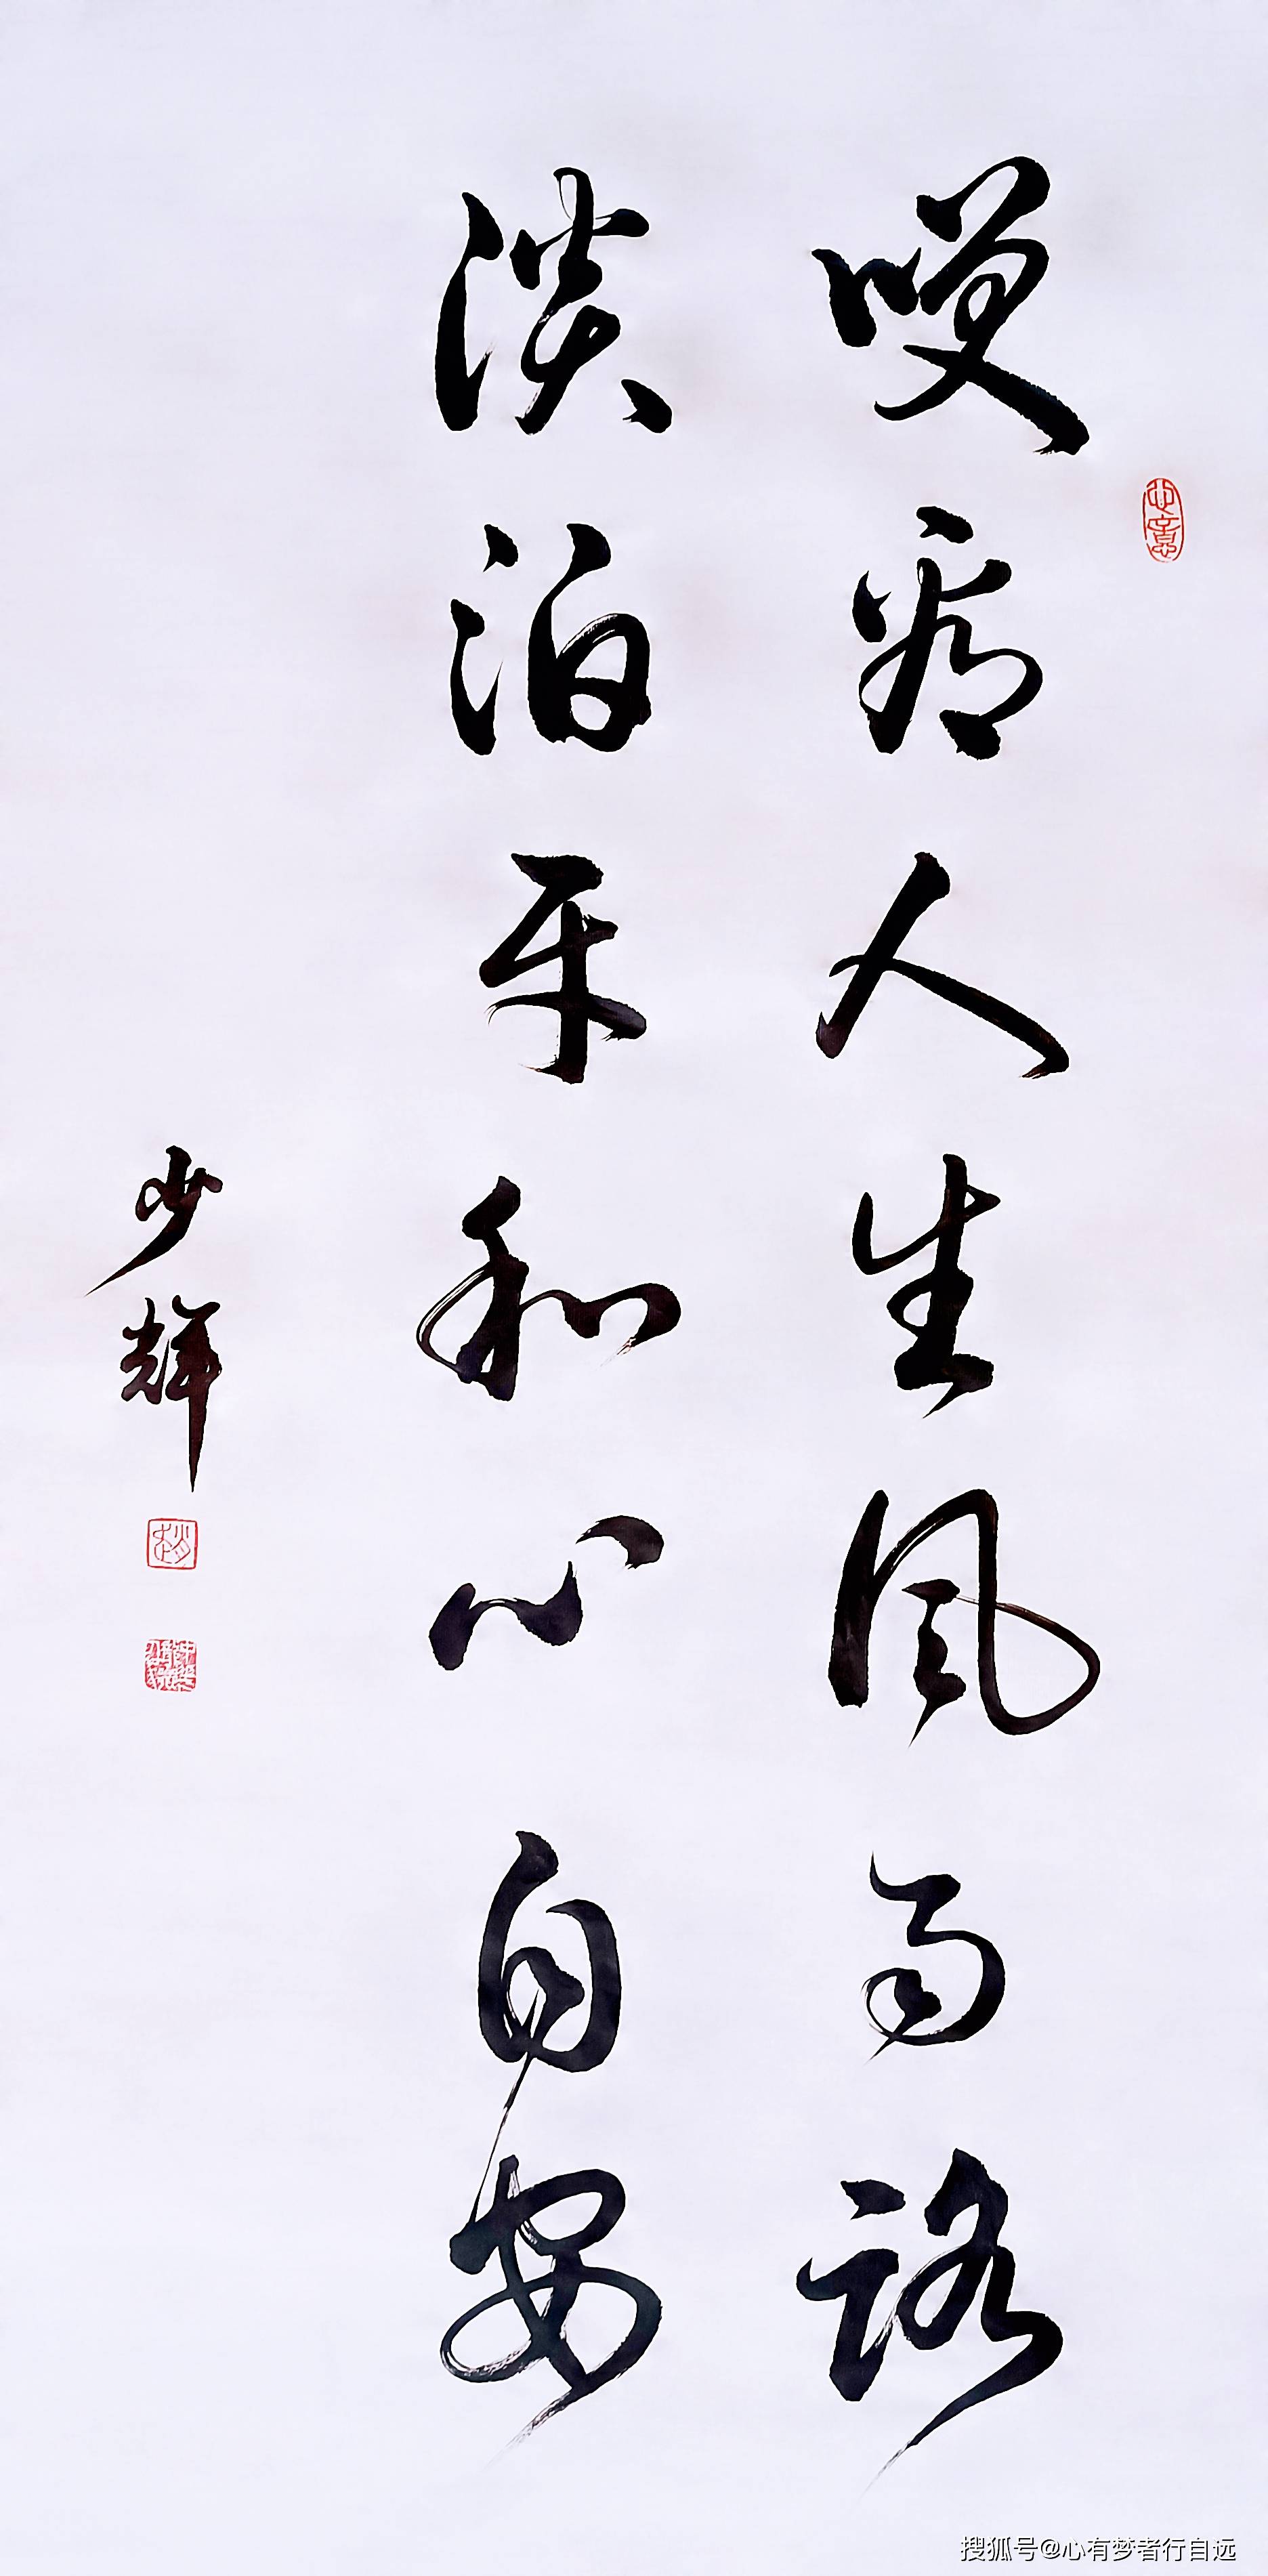 咲看人生风雨路
淡泊平和心自安
少輝
搜狐号@心有梦者行自远